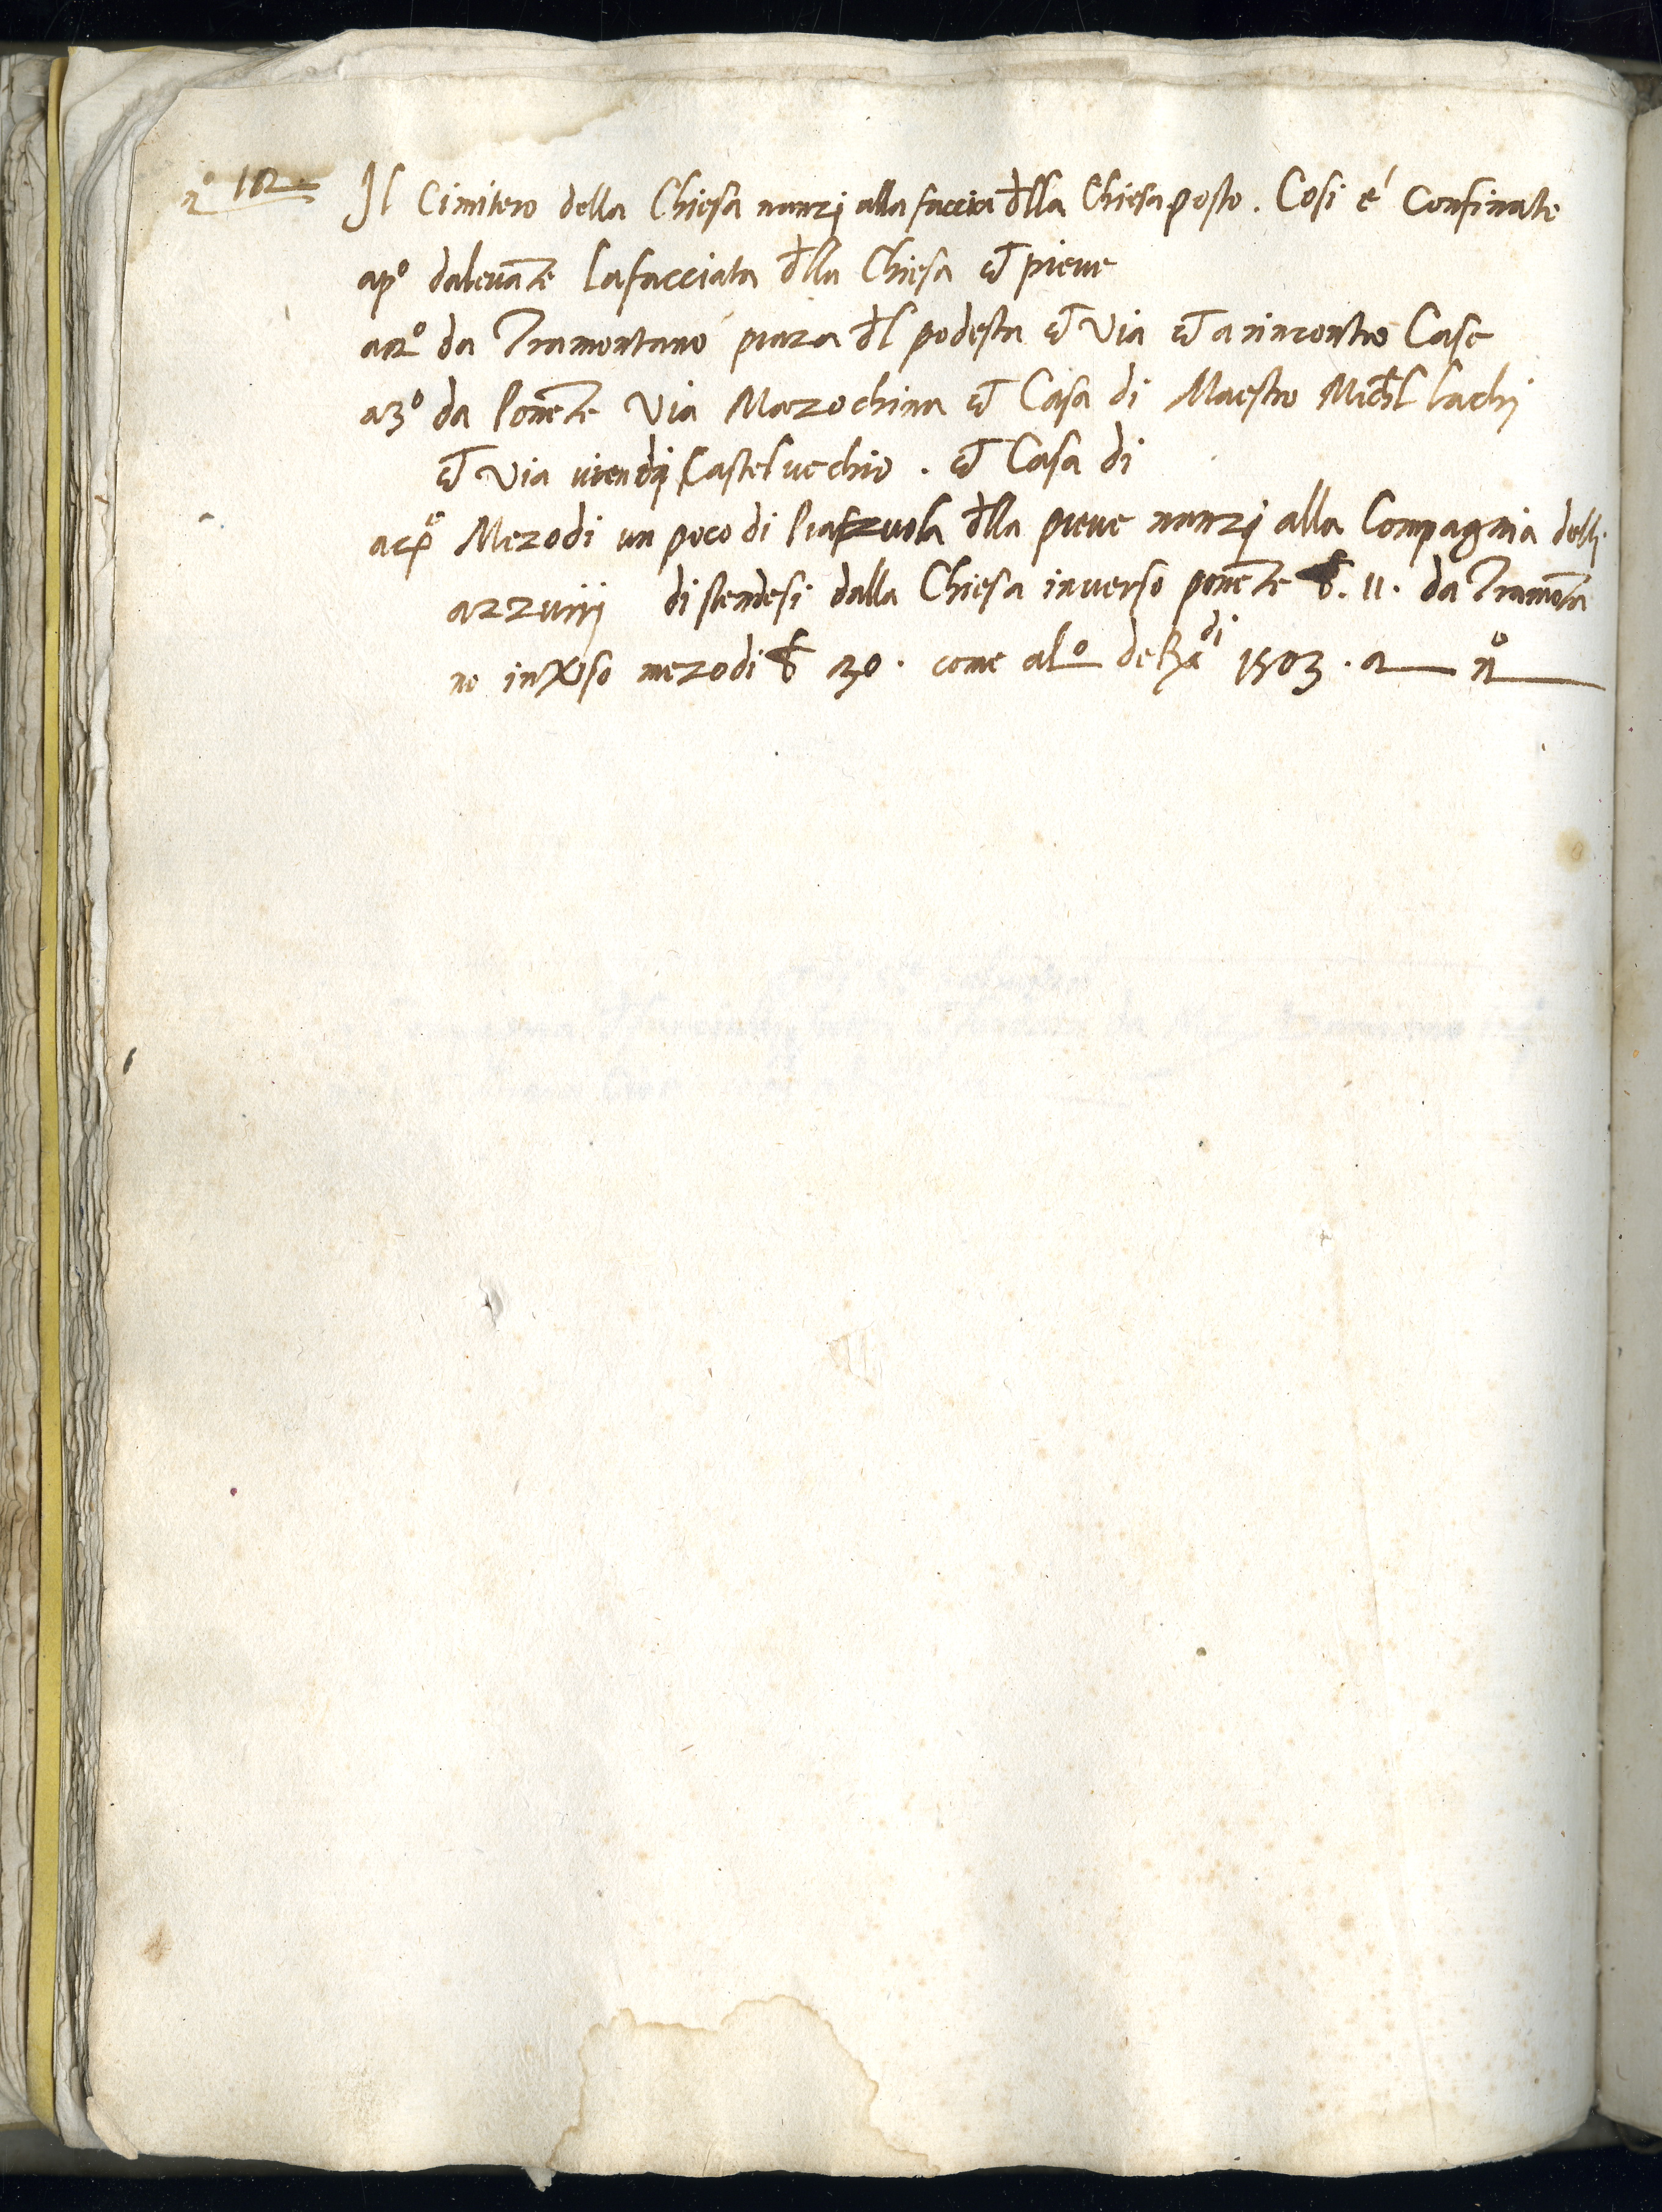 nº 12 Il Cimitero della Chiesa nanzi alla faccia dlla Chiesa posto. Cosi é Confinato
apº dalevāte lafacciata dlla Chiesa et pieve
a2º da Tramontano piaza dl podesta et via et a rinrontro Case
a3º da ponēte via Mazochina et Casa di Maestro Michl Lachi
et via vicendi Castelvechio. et Casa di
a4º Mezodi un poco di piazzuola dlla pieve nanzi alla Compagnia delli
azzurrj distendesi dalla Chiesa inverso ponēte 11. da Tramōta
no inverso mezodi 30. come alº de di 1503. a nº